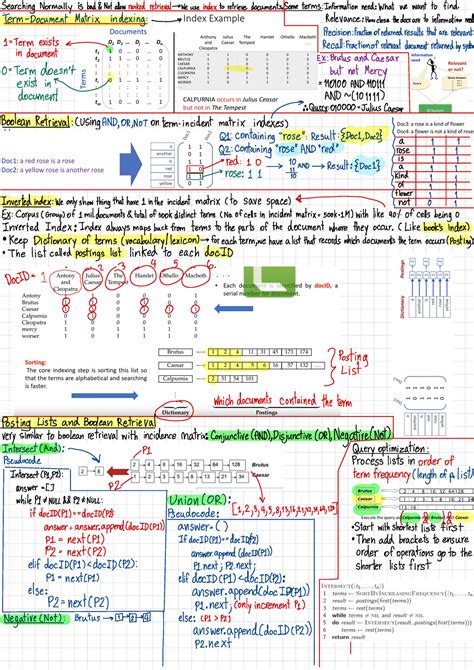 Searching Normally is bad & Not allow ranked retrieval → We use index to retrieve documents
Some terms: Information needs: What we want to find
Term-Document Matrix indexing:
Index Example
Relevance: How close the docs are to information need
Documents
Precision: Fraction of returned results that are relevant
Recall: Fraction of relevant document returned by system
1 = Term exists in document
0 = Term doesn't exist in document
Terms
Antony and Cleopatra
Julius Caesar
The Tempest
Hamlet
Othello
Macbeth
ANTHONY
BRUTUS
CAESAR
CALPURNIA
CLEOPATRA
MERCY
WORSER
CALPURNIA occurs in Julius Caesar
but not in The Tempest
Ex: Brutus and Caesar
but not Mercy
= 110100 AND 110111
AND ~(101111)
Information need
Relevant or not?
Boolean Retrieval: (Using AND, OR, NOT on term-incident matrix indexes)
Doc1: a red rose is a rose
Doc2: a yellow rose is another rose
Q1: Containing "rose": Result: {Doc1, Doc2}
Q2: Containing "rose" AND "red"
red: 1 0
rose: 1 1
10
11
AND
10
→ Result: {Doc1}
Doc3: a rose is a kind of flower
Doc4: a flower is not a kind of rose
a
rose
is
a
kind
of
flower
not
Inverted index: We only show thing that have 1 in the incident matrix (to save space)
Ex: Corpus (Group) of 1 mil documents & total of 500k distinct terms (No. of cells in incident matrix = 500k·1M) with like 90% of cells being 0
Inverted Index: Index always maps back from terms to the parts of the document where they occur. (Like book's index)
• Keep Dictionary of terms (vocabulary/lexicon) → for each term, we have a list that records which documents the term occurs (Posting)
• The list called postings list linked to each docID
DocID = 1 2 3 4 5 6
Antony and Cleopatra
Julius Caesar
The Tempest
Hamlet
Othello
Macbeth
Antony
Brutus
Caesar
Calpurnia
Cleopatra
mercy
worser
• Each document is identified by docID, a serial number for document.
Dictionary
Postings
Sorting:
The core indexing step is sorting this list so
that the terms are alphabetical and searching
is faster.
Brutus 1 2 4 11 31 45 173 174
Caesar 1 2 4 5 6 16 57 132
Calpurnia 2 31 54 101
Posting List
Dictionary Postings
Which documents contained the term
Posting Lists and Boolean Retrieval
very similar to boolean retrieval with incidence matrix: Conjunctive (AND), Disjunctive (OR), Negative (Not)
Intersect (And):
Pseudocode
Intersect (P1, P2):
answer = []
while P1 ≠ NULL && P2 ≠ NULL:
if docID(P1) == docID(P2):
answer = answer.append(docID(P1))
P1 = next(P1)
P2 = next(P2)
elif docID(P1) < docID(P2):
P1 = next(P1)
else:
P2 = next(P2)
Negative (Not): Brutus →
P1
2 → 8
2 4 8 16 32 64 128 Brutus
1 2 3 5 8 13 21 34 Caesar
P2
Union (OR):
Pseudocode:
answer = ()
If docID(P1) == docID(P2):
answer.append(docID(P1))
P1.next; P2.next;
elif docID(P1) < docID(P2):
answer.append(docID(P1))
P1.next; (only increment P1)
else: (P1 > P2)
answer.append(docID(P2))
P2.next
Query optimization:
Process lists in order of
term frequency (length of p. list)
Brutus
Caesar
Calpurnia
• Start with shortest lists first
• Then add brackets to ensure
order of operations go to the
shorter lists first
INTERSECT(⟨t1, . . . , tn⟩)
1 terms ← SORTBYINCREASINGFREQUENCY(⟨t1, . . . , tn⟩)
2 result ← postings(first(terms))
3 terms ← rest(terms)
4 while terms ≠ NIL and result ≠ NIL
5 do result ← INTERSECT(result, postings(first(terms)))
6 terms ← rest(terms)
7 return result